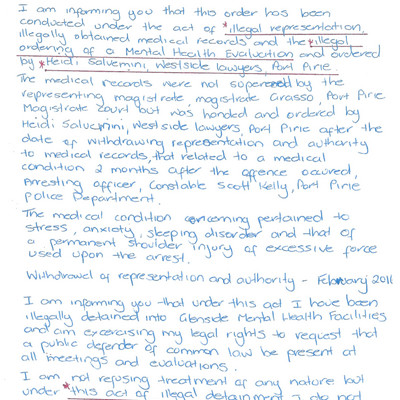 I am informing you that this order has been
conducted under the act of *illegal representation,
illegally obtained medical records and the *illegal
ordering of a Mental Health Evaluation and ordered
by *Heidi Salvemini, Westside lawyers, Port Pirie.
The medical records were not supeoned by the
representing magistrate, magistrate Grasso, Port Pirie
Magistrate court but was handed and ordered by
Heidi Salvemini, Westside lawyers, Port Pirie after the
date of withdrawing representation and authority
to medical records, that related to a medical
condition 2 months after the offence occured,
Arresting officer, Constable Scott Kelly, Port Pirie
Police Department.
The medical condition concerning pertained to
stress, anxiety, sleeping disorder and that of
a permanent shoulder injury of excessive force
used upon the arrest.
Withdrawel of representation and authority - February 2011
I am informing you that under this act I have been
illegally detained into Glenside Mental Health Facilities
and am excercising my legal rights to request that
a public defender of common law be present at
all meetings and evaluations.
I am not refusing treatment of any nature but
under *this act of illegal detainment I do not